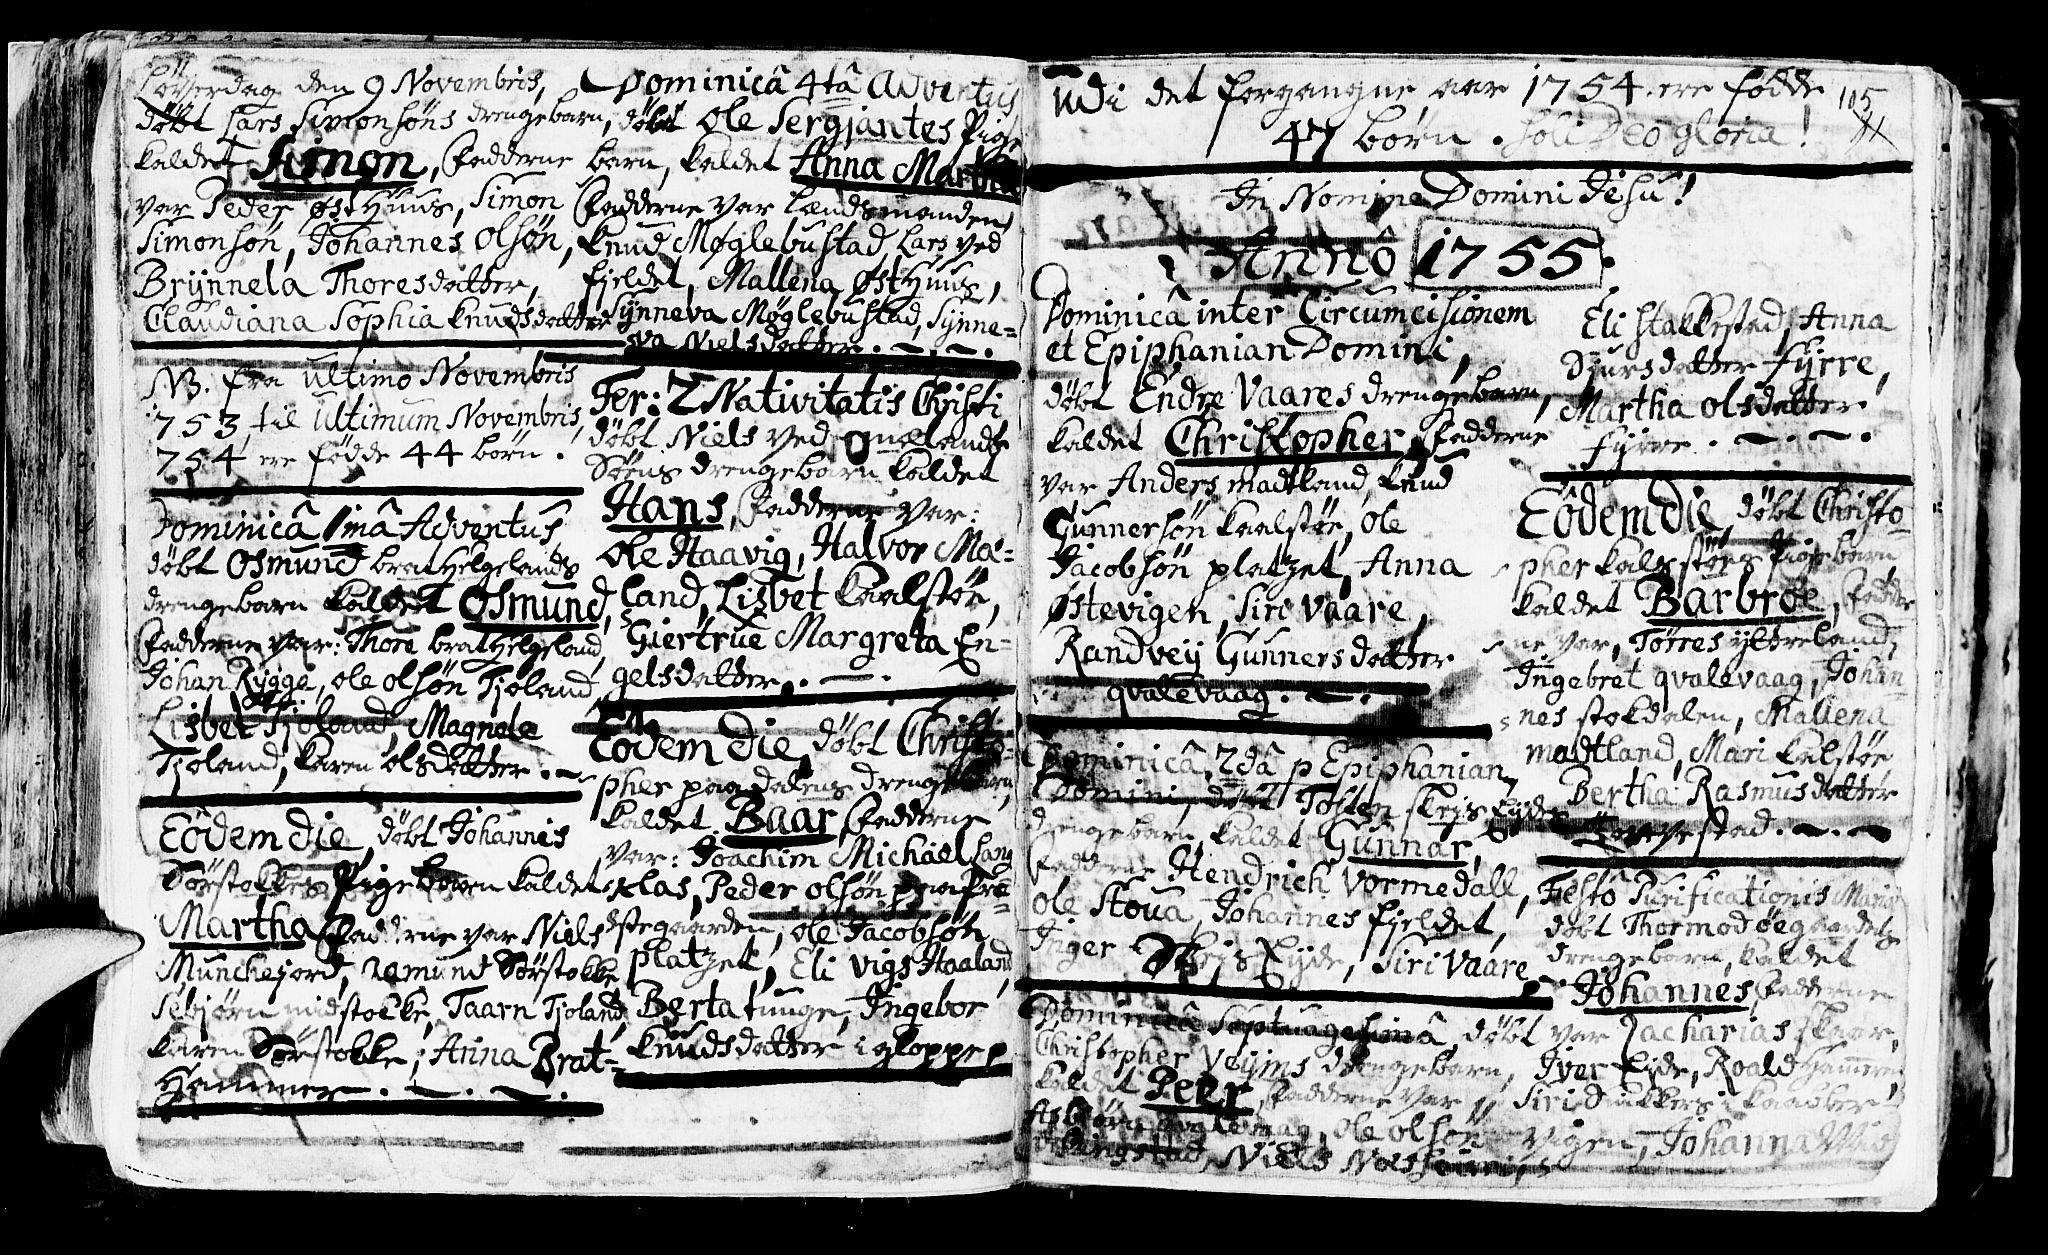 Løverdag den 9 Novembris,
döbt Lars Simonsöns drengebarn,
kaldet Simon, Fadderne
var Peder østHuus, Simon
Simonsön, Johannes Olsön,
Brÿnnela Thoresdatter,
Claudiana Sophia Knudsdatter
NB. fra ultimo Novembris
1753, til ultimum Novembris,
1754 ere fødde 44 børn.
Dominicâ 1mâ Adventus,
döbt Osmund bratHelgelands
drengebarn kaldet Osmund,
Fadderne var: Thore bratHelgeland,
Johan Rygge, ole olsön Tjoland,
Lisbet Tjoland, Magnele
Tjoland, Karen olsdatter.
Eôdem die, döbt Johannis
Sörstokkes Pigebarn kaldet
Martha Fadderne var Niels
Munchejord, Amund Sörstokke,
Sebjørn midstokke, Taarn Tjoland,
Karen Sörstokke, Anna Brat-
Hammer.
Dominicâ 4tâ Adventus
döbt Ole Sergjantes Pige
barn, kaldet Anna Martha
Fadderne var Lændsmanden
Knud Møglebustad, Lars ved
fjeldet, Mallena ØstHuus,
Synneva Møglebustad, Synne-
va Nielsdatter.
Fer: 2 Nativitatis Christi
döbt Niels ved qualands
Sörens drengebarn kaldet
Hans, Fadderne var:
Ole Haavig, Halvor Mæ-
land, Lisbet Kaalstöe,
Giertrue Margreta En-
gelsdatter.
Eôdem die, döbt Christo-
pher paa dalens drengebarn,
kaldet Baar, Fadderne
var: Joachim Michael Lang
Klas, Peder olsön paa Præ-
stegaarden, ole Jacobsön
platzet, Eli vigs Haaland,
Berta tunge, Ingebor
Knudsdatter i gloppe
Udi det forgangne aar 1754 ere fødde 105
47 børn. Soli Deo gloria!
In Nomine Domini Jesu!
Annô 1755.
Dominicâ inter Circumcisionem
et Epiphanian Domini,
döbt Endre Vaares drengebarn,
kaldet Christopher, Fadderne
var Anders madtland, Knud
Gunnersön Kaalstöe, Ole
Jacobsön platzet, Anna
Østevigen, Siri Vaare,
Randveij Gunnersdatter
qvalevaag.
Dominicâ 2dâ p Epiphanian
Domini, döbt Tosten Skeis Eÿdes
drengebarn, kaldet Gunnar,
Fadderne Hendrich Vormedall,
ole Stoua, Johannes fjeldet,
Inger Skeis Eÿde, Siri Vaare
Dominicâ Septuagesimâ, döbt
Christopher Veÿms drengebarn,
kaldet Peer, Fadderne var
Asbiörn qvalevaag, ole olsön
Ringstad, Niels
Eli Stakkestad, Anna
Djursdatter Fÿrre,
Martha olsdatter
Fÿrre.
Eôdem die, döbt Christo-
pher Kalsstöes Pigebarn
kaldet Barbroe, Fadder
ne var, Törres ÿttreland,
Ingebret qvalevaag, Johan-
nes stokdalen, Mallena
madtland, Mari Kalstöe
Bertha Rasmusdatter
Tovestad.
Festo Purificationis Mariæ
döbt Thormod øegaardets
drengebarn, kaldet
Johannes, Fadderne
var Zacharias Skaar,
Iver Eide, Roald Hammer
Siri Duikkers i Kaaber-
vigen, Johanna